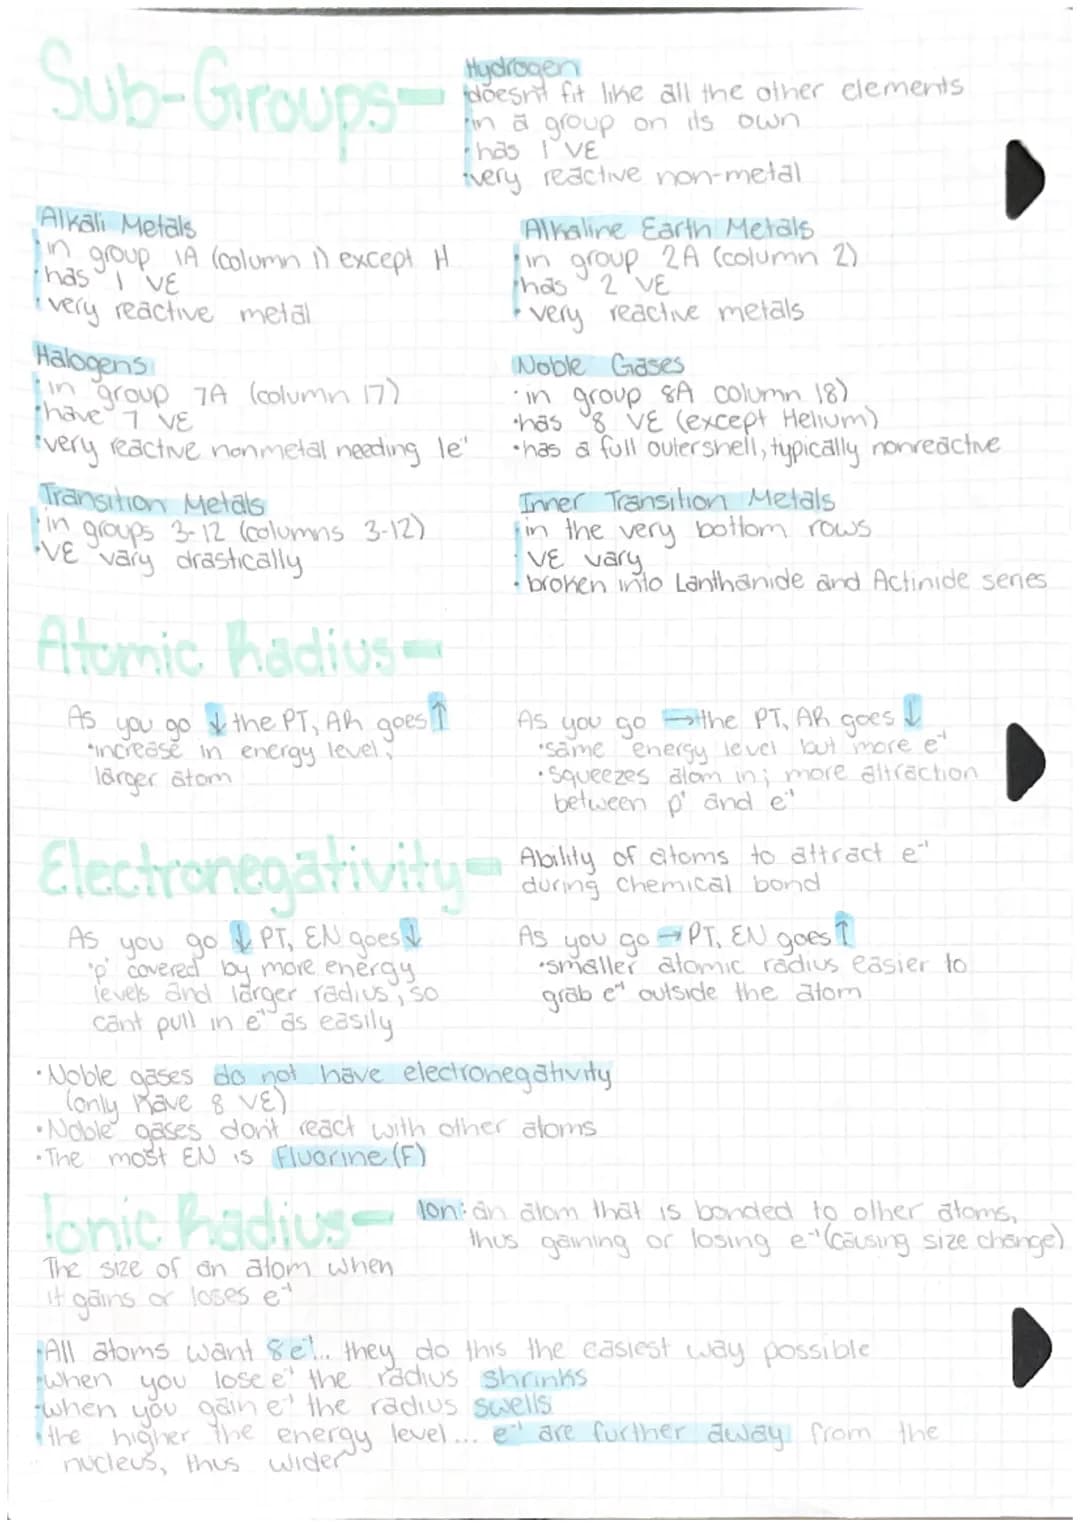 Sub-Groups-
Hydrogen
·doesn't fit like all the other elements
·in a group on its own
·has 1 VE
·very reactive non-metal
Alkali Metals
·in group 1A (column 1) except H
·has 1 VE
·very reactive metal
Alkaline Earth Metals
·in group 2A (column 2)
·has 2 VE
·very reactive metals
Halogens
·in group 7A (column 17)
·have 7 VE
·very reactive nonmetal needing 1e⁻¹
Noble Gases
·in group 8A column 18)
·has 8 VE (except Helium)
·has a full outershell, typically nonreactive
Transition Metals
·in groups 3-12 (columns 3-12)
·VE vary drastically
Inner Transition Metals
·in the very bottom rows
·VE vary
·broken into Lanthanide and Actinide series
Atomic Radius-
As you go ↓ the PT, AR goes ↑
·increase in energy level;
larger atom
As you go → the PT, AR goes ↓
·same energy level but more e⁻¹
·squeezes atom in; more attraction
between p⁺ and e⁻¹
Electronegativity-
Ability of atoms to attract e⁻¹
during chemical bond
As you go ↓ PT, EN goes ↓
·p⁺ covered by more energy
levels and larger radius, so
cant pull in e⁻¹ as easily
As you go → PT, EN goes ↑
·smaller atomic radius easier to
grab e⁻¹ outside the atom
·Noble gases do not have electronegativity
(only have 8 VE)
·Noble gases don't react with other atoms
·The most EN is Fluorine (F)
Ionic Radius-
Ion: an atom that is bonded to other atoms,
thus gaining or losing e⁻¹ (causing size change)
The size of an atom when
it gains or loses e⁻¹
·All atoms want 8 e⁻¹... they do this the easiest way possible
·when you lose e⁻¹ the radius shrinks
·when you gain e⁻¹ the radius swells
·the higher the energy level... e⁻¹ are further away from the
nucleus, thus wider